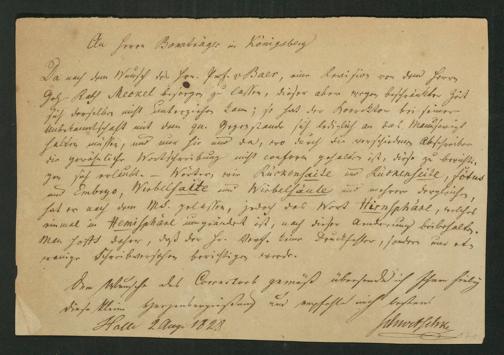 An Herrn Bornträger in Königsberg
Da nach dem Wunsch des Hrn. Prof. v Baer, eine Revision von dem Herrn
Geh. Rath Meckel besorgen zu lassen, dieser aber wegen beschränkter Zeit
sich derselben nicht unterziehen kann; so hat der Corrector bei seiner
Unbekanntschaft mit dem gn. Gegenstande sich lediglich an das Manuscript
halten müssen, und nur hie und da, wo durch die verschiedenen Abschreiber
die gewöhnliche Wortschreibung nicht conform gehalten ist, diese zu berichti-
gen sich erlaubt. – Wörter, wie Rückensaite und Rückenseite, Fötus
und Embryo, Wirbelsaite und Wirbelsäule und mehrere dergleichen,
hat er nach dem Ms. gelassen, jedoch das Wort Hirnsphäre, welches
einmal in Hemisphäre umgeändert ist, nach dieser Aenderung beibehalten.
Man hofft daher, daß der Hr. Verf. keine Druckfehler, sondern nur et-
wenige Schreibversehen berichtigen werde.
Dem Wunsche des Correctors gemäß übersende ich Ihnen
diese kleine und empfehle mich bestens
Halle 2 Aug. 1828. Schwetschke